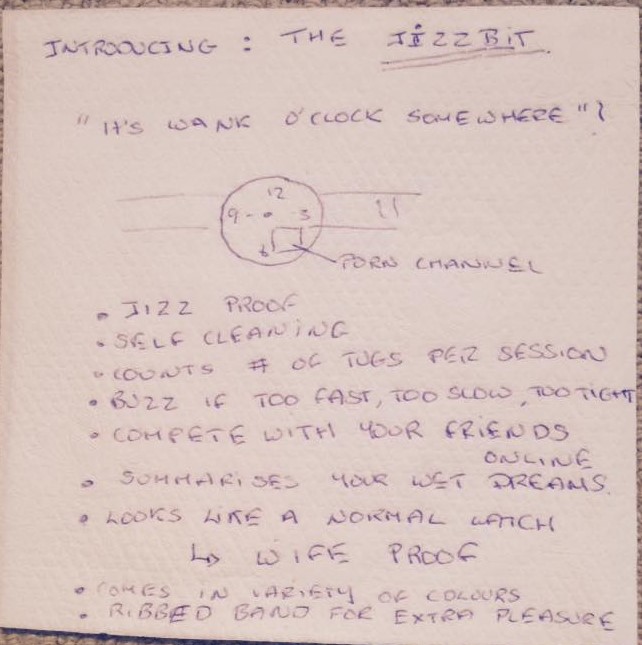 INTRODUCING : THE JIZZBIT.
"IT'S WANK O'CLOCK SOMEWHERE"?
12
9 3
6
PORN CHANNEL
• JIZZ PROOF
• SELF CLEANING
• COUNTS # OF TUGS PER SESSION
• BUZZ IF TOO FAST, TOO SLOW, TOO TIGHT
• COMPETE WITH YOUR FRIENDS
ONLINE
• SUMMARISES YOUR WET DREAMS.
• LOOKS LIKE A NORMAL WATCH
↳ WIFE PROOF
• COMES IN VARIETY OF COLOURS
• RIBBED BAND FOR EXTRA PLEASURE